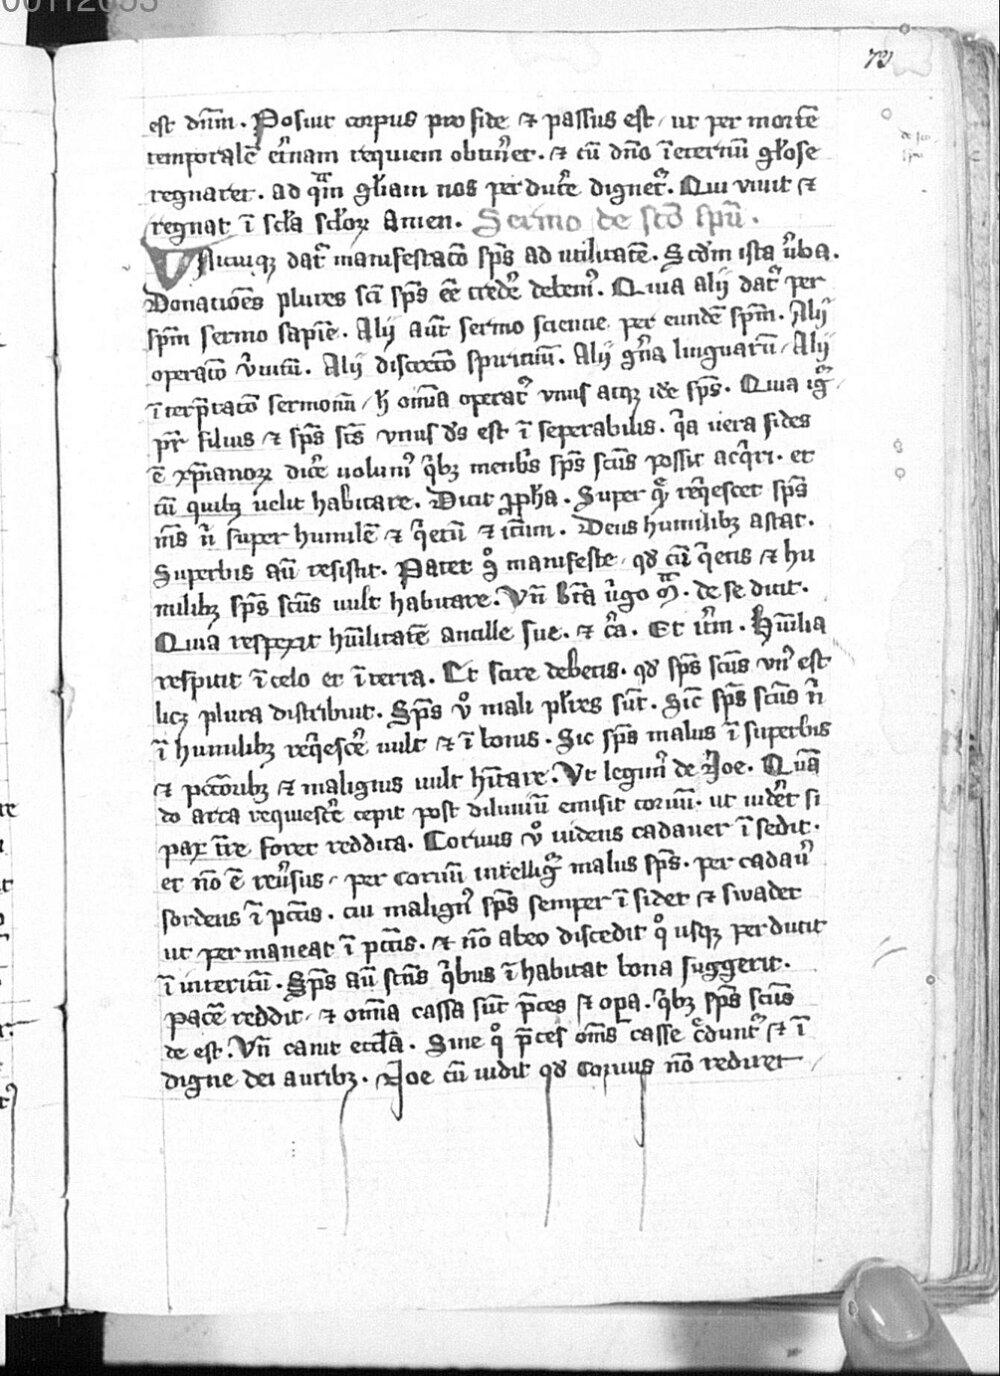 00112653
79
est dn̄m. Posuit corpus pro fide ⁊ passus est, ut per mortē
temporalē et̾nam requiem obtin̾et. ⁊ cū dn̄o ī eternū gl̾ose
regnaret. ad q̄m gl̾iam nos perduc̾e dignet̾. Qui vivit ⁊
regnat ī scl̾a scl̾oꝝ Amen. Sermo de sc̄o spū.
de sc̄o
spū
Vnicuiqꝫ dat̾ manifestac̄o sp̄s ad utilitatē. Scd̾m ista v̾ba.
Donatiōes plures sc̄i sp̄s eē cred̾e debem̾. Quia alij dat̾ per
sp̄m sermo sapiē. Alij aūt sermo sciencie per eundē sp̄m. Alij
operac̄o v̾tutū. Alij discrec̄o spirituū. Alij gn̾a linguarū, Alij
īterp̄tac̄o sermonū, h̄ om̄ia operat̾ vnus atqꝫ idē sp̄s. Quia ig̾
pr̄ filius ⁊ sp̄s sc̄s vnus d̾s est ī seperabilis. q̾a vera fides
ē xp̄ianoꝝ dic̾e volum̾ q̾bꝫ merit̾s sp̄s scūs possit acq̾ri. et
cū quibꝫ velit habitare. Dicit ꝓph̄a. Super q̄ req̾escet sp̄s
m̄s n̄ super humilē ⁊ q̾etū ⁊ ic̄um. Deus humilibꝫ astat.
Superbis aū resistit. Patet g̾ manifeste, qd̾ cū q̾etis ⁊ hu
milibꝫ sp̄s scūs vult habitare. Vn̄ b̄ta v̾go m̄. de se dicit.
Quia respexit hūilitatē ancille sue. ⁊ c̾a. Et it̾m. Hūilia
respicit ī celo et ī terra. Et scire debetis. qd̾ sp̄s scūs vn̾ est
licꝫ plura distribuit. Sp̄s v̾ mali pl̾res sūt. Sic̄ sp̄s scūs n̄
ī humilibꝫ req̾esc̾e vult ⁊ ī bonis. Sic sp̄s malus ī superbis
⁊ pcc̄oribꝫ ⁊ malignis vult hītare. Vt legim̾ de Noe. Quā
do arca requiesc̾e cepit post diluviū emisit corvū. ut vid̾et si
pax t̄re foret reddita. Corvus v̾ videns cadaver ī sedit.
et nō ē rev̾sus, per corvū intellig̾ malus sp̄s. per cadav̾
sordens ī pcc̄is. cui malign̾ sp̄s semper ī sidet ⁊ swadet
ut permaneat ī pcc̄is. ⁊ nō ab eo discedit q̾ usqꝫ perducit
ī interitū. Sp̄s aū scūs q̾bus īhabitat bona suggerit.
pacē reddit, ⁊ om̄ia cassa sūt p̄ces ⁊ oꝑa. q̾bꝫ sp̄s scūs
de est. Vn̄ canit eccl̾ia. Sine q̾ p̄ces om̄s casse c̾dunt̾ ⁊ ī
digne dei auribꝫ. Noe cū vidit qd̾ corvus nō rediret